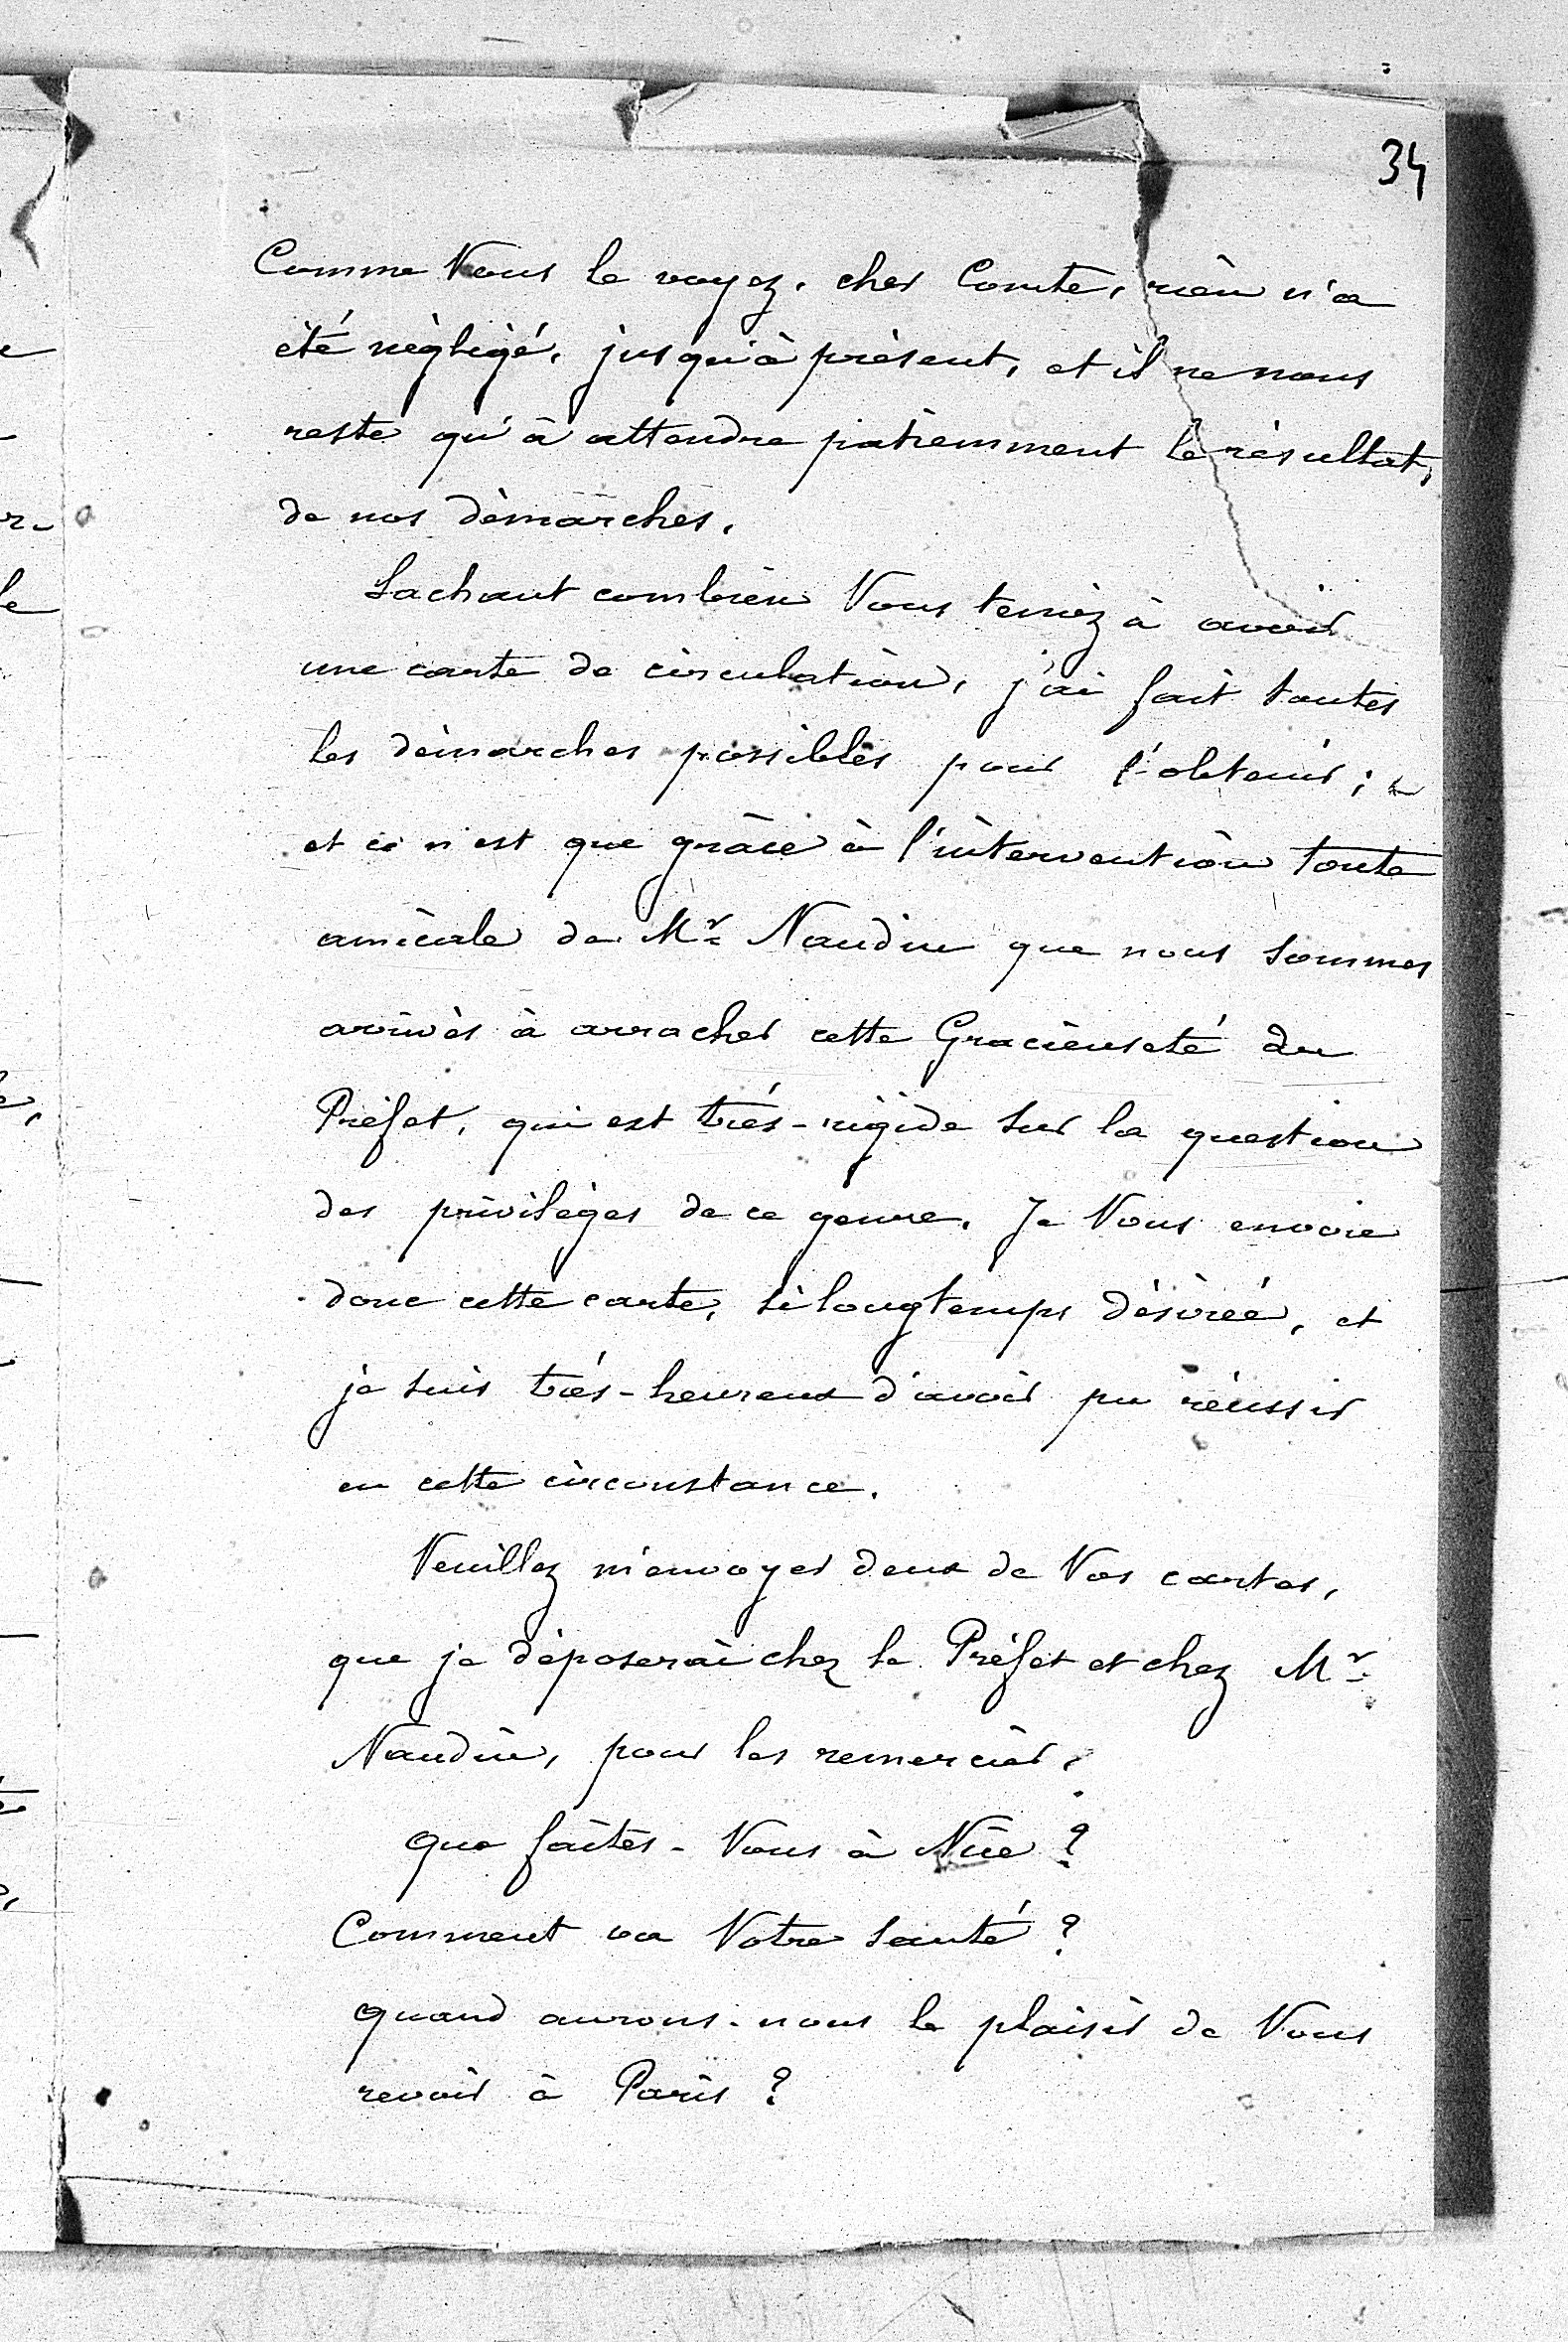 34
Comme Vous le voyez, cher Comte, rien n'a
été négligé, jusqu'à présent, et il ne nous
reste qu'à attendre patiemment le résultat,
de nos démarches.
Sachant combien Vous teniez à avoir
une carte de circulation, j'ai fait toutes
les démarches possibles pour l'obtenir;
et ce n'est que grâce à l'intervention toute
amicale de Mr Naudin que nous sommes
arrivés à arracher cette Gracieuseté du
Préfet, qui est trés-rigide sur la question
des privilèges de ce genre. Je Vous envoie
donc cette carte, si longtemps désirée, et
je suis trés-heureux d'avoir pu réussir
en cette circonstance.
Veuillez m'envoyer deux de Vos cartes,
que je déposerai chez le Préfet et chez Mr
Naudin, pour les remercier.
Que faites-Vous à Nice?
Comment va Votre santé?
Quand aurons-nous le plaisir de Vous
revoir à Paris?